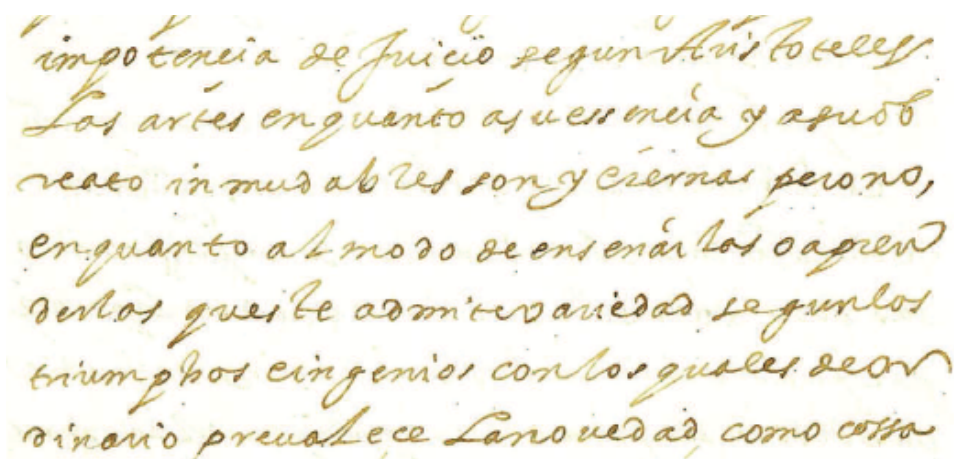 impotencia de Juicio segun Aristoteles.
Las artes en quánto asu essencia y asu ob
recto inmudables son y eternas pero no,
en quanto al modo de enseñárlas o apren
derlas queste admite variedad segun los
triumphos e ingenios con los quales de or
dinario prevalece La novedad como cossa